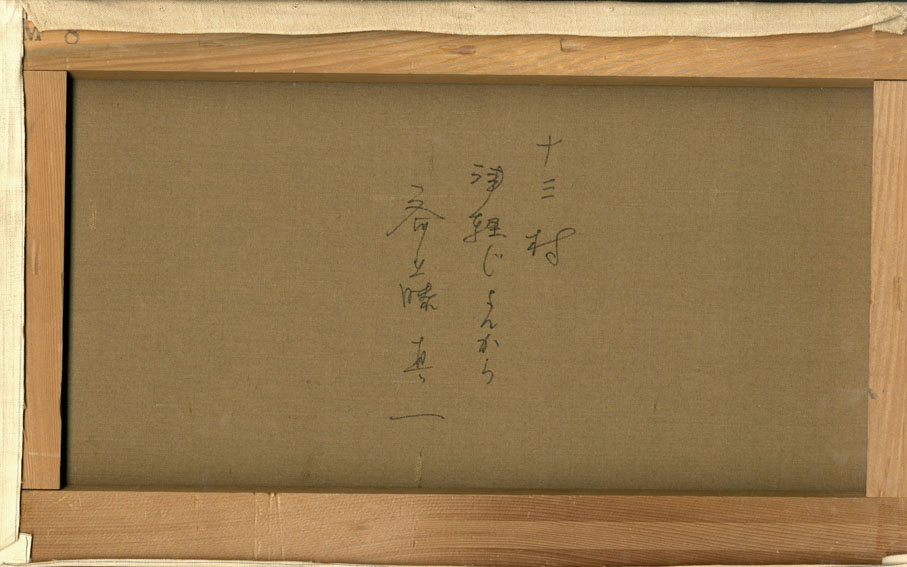 十三村
津軽じょんから
斎藤真一